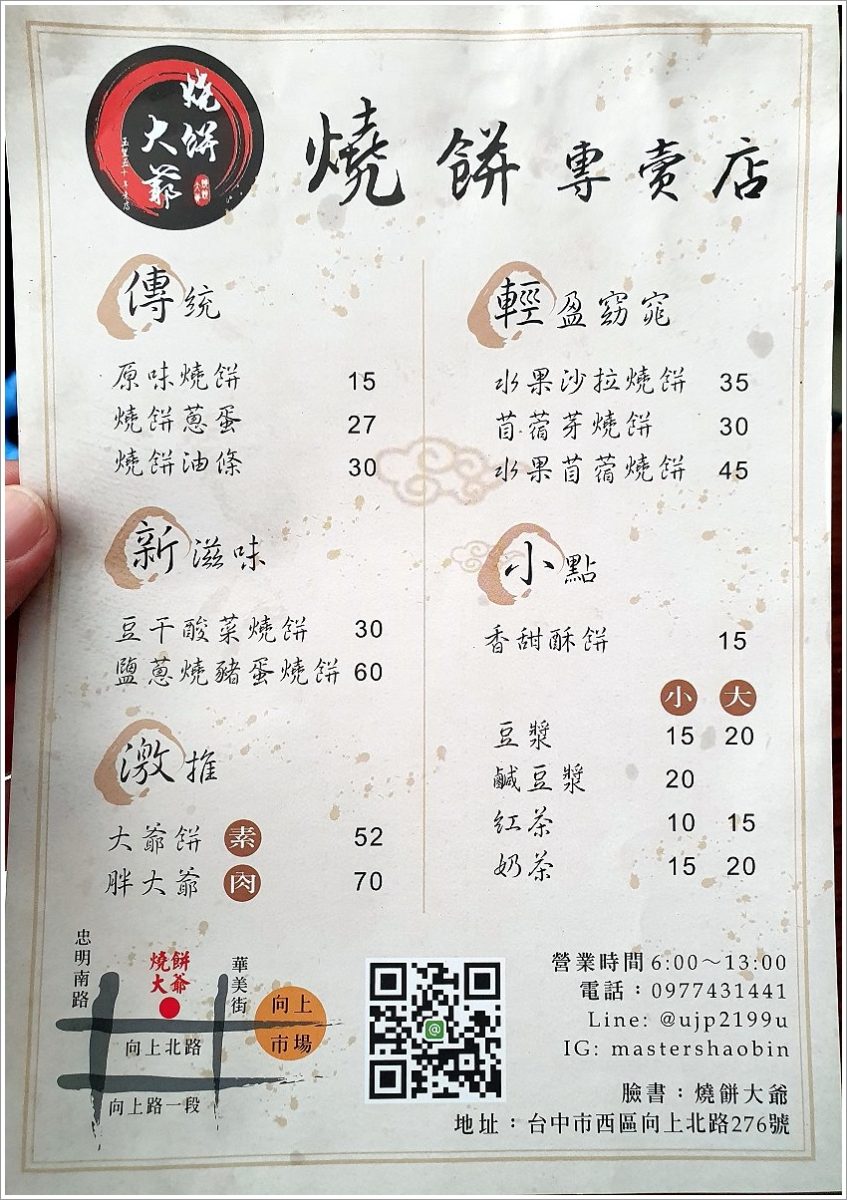 燒餅
大爺
燒餅專賣店
傳統
原味燒餅 15
燒餅蔥蛋 27
燒餅油條 30
新滋味
豆干酸菜燒餅 30
鹽蔥燒豬蛋燒餅 60
激推
大爺餅 素 52
胖大爺 肉 70
輕盈窈窕
水果沙拉燒餅 35
苜蓿芽燒餅 30
水果苜蓿燒餅 45
小點
香甜酥餅 15
小 大
豆漿 15 20
鹹豆漿 20
紅茶 10 15
奶茶 15 20
忠明南路
燒餅
大爺
華美街
向上
市場
向上北路
向上路一段
營業時間6:00～13:00
電話：0977431441
Line: @ujp2199u
IG: mastershaobin
臉書：燒餅大爺
地址：台中市西區向上北路276號